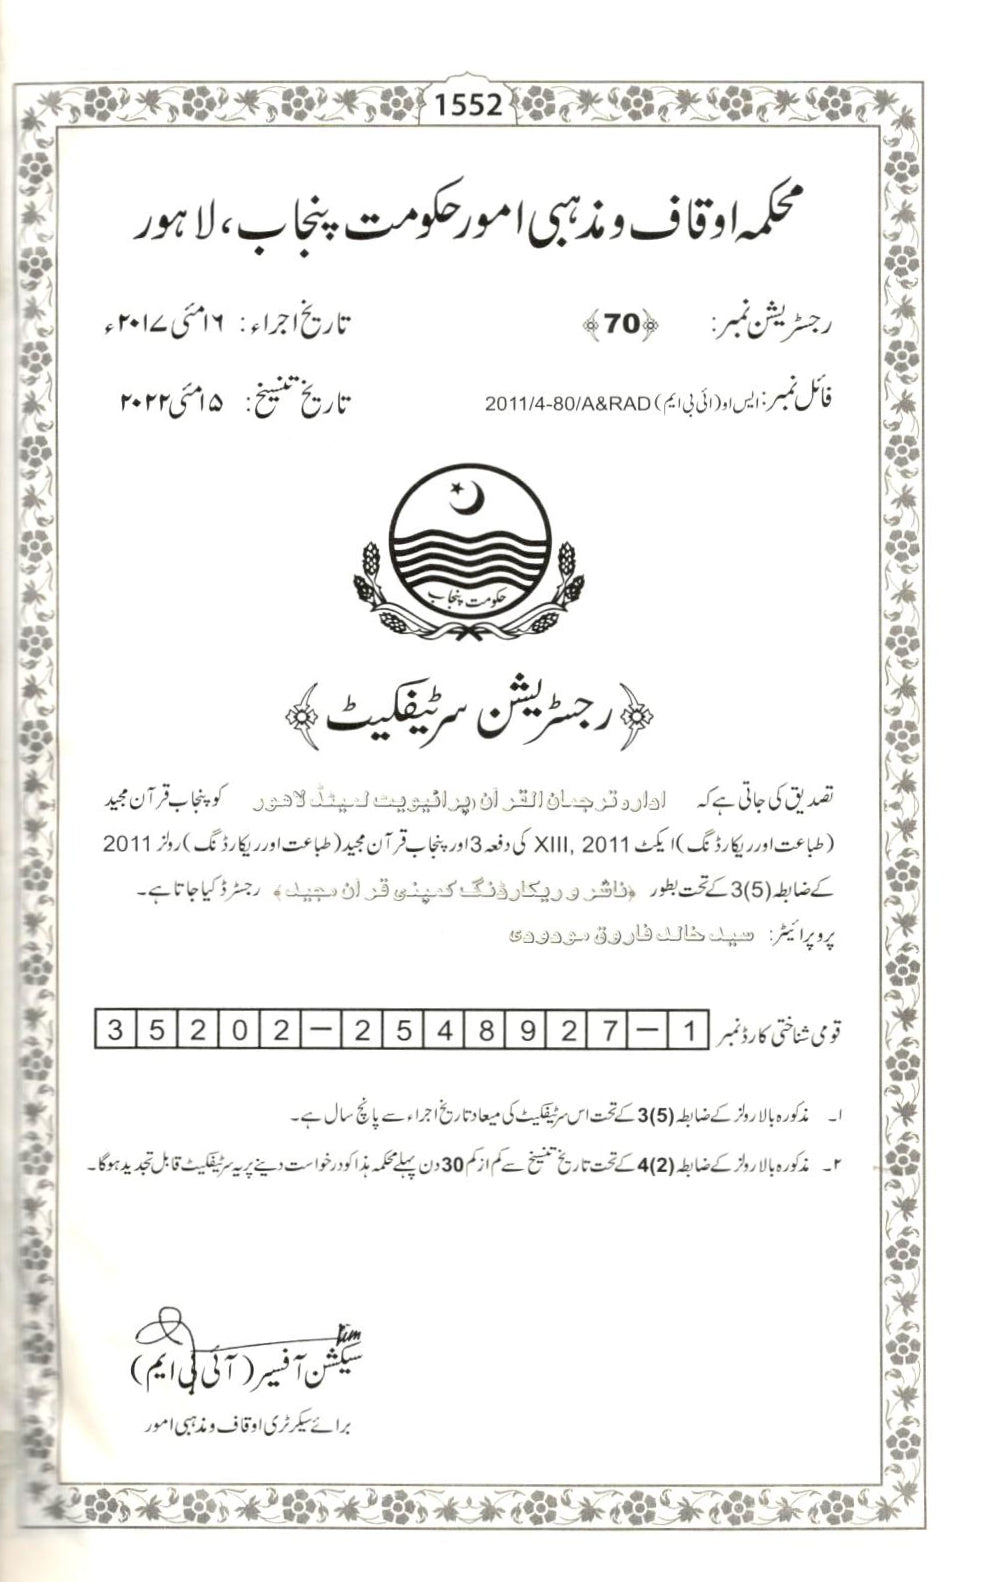 1552
محکمہ اوقاف و مذہبی امور حکومت پنجاب، لاہور
رجسٹریشن نمبر: ﴿70﴾ تاریخ اجراء: ۱۶مئی ۲۰۱۷ء
فائل نمبر: ایس او(آئی پی ایم)2011/4-80/A&RAD تاریخ تنسیخ: ۱۵مئی ۲۰۲۲
حکومت پنجاب
﴿رجسٹریشن سرٹیفکیٹ﴾
تصدیق کی جاتی ہے کہ ادارہ ترجمان القرآن پرائیویٹ لمیٹڈ لاہور کو پنجاب قرآن مجید
(طباعت اور ریکارڈنگ) ایکٹ 2011 ,XIII کی دفعہ 3 اور پنجاب قرآن مجید (طباعت اور ریکارڈنگ) رولز 2011
کے ضابطہ (5)3 کے تحت بطور ﴿ناشر و ریکارڈنگ کمپنی قرآن مجید﴾ رجسٹرڈ کیا جاتا ہے۔
پروپرائیٹر: سید خالد فاروق مودودی
قومی شناختی کارڈ نمبر 35202-2548927-1
۱۔ مذکورہ بالا رولز کے ضابطہ (5)3 کے تحت اس سرٹیفکیٹ کی میعاد تاریخ اجراء سے پانچ سال ہے۔
۲۔ مذکورہ بالا رولز کے ضابطہ (2)4 کے تحت تاریخ تنسیخ سے کم از کم 30 دن پہلے محکمہ ہذا کو درخواست دینے پر یہ سرٹیفکیٹ قابل تجدید ہوگا۔
سیکشن آفیسر (آئی پی ایم)
برائے سیکرٹری اوقاف و مذہبی امور